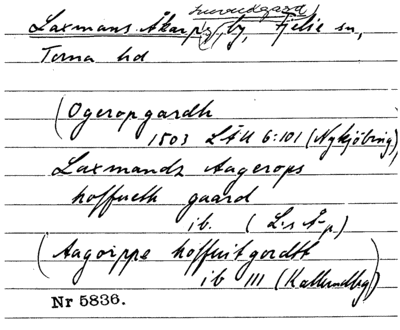 huvudgaard
Laxmans Åkarp, by, Fjelie sn,
Torna hd
(Ogeropgardh
1503 LÅU 6:101 (Nykjöbing),
Laxmandz Aagerops
hoffueth gaard
ib. (L:s Å-p)
(Aagoippe hoffuitgordtt
ib 111 (Kallundbg)
Nr 5836.